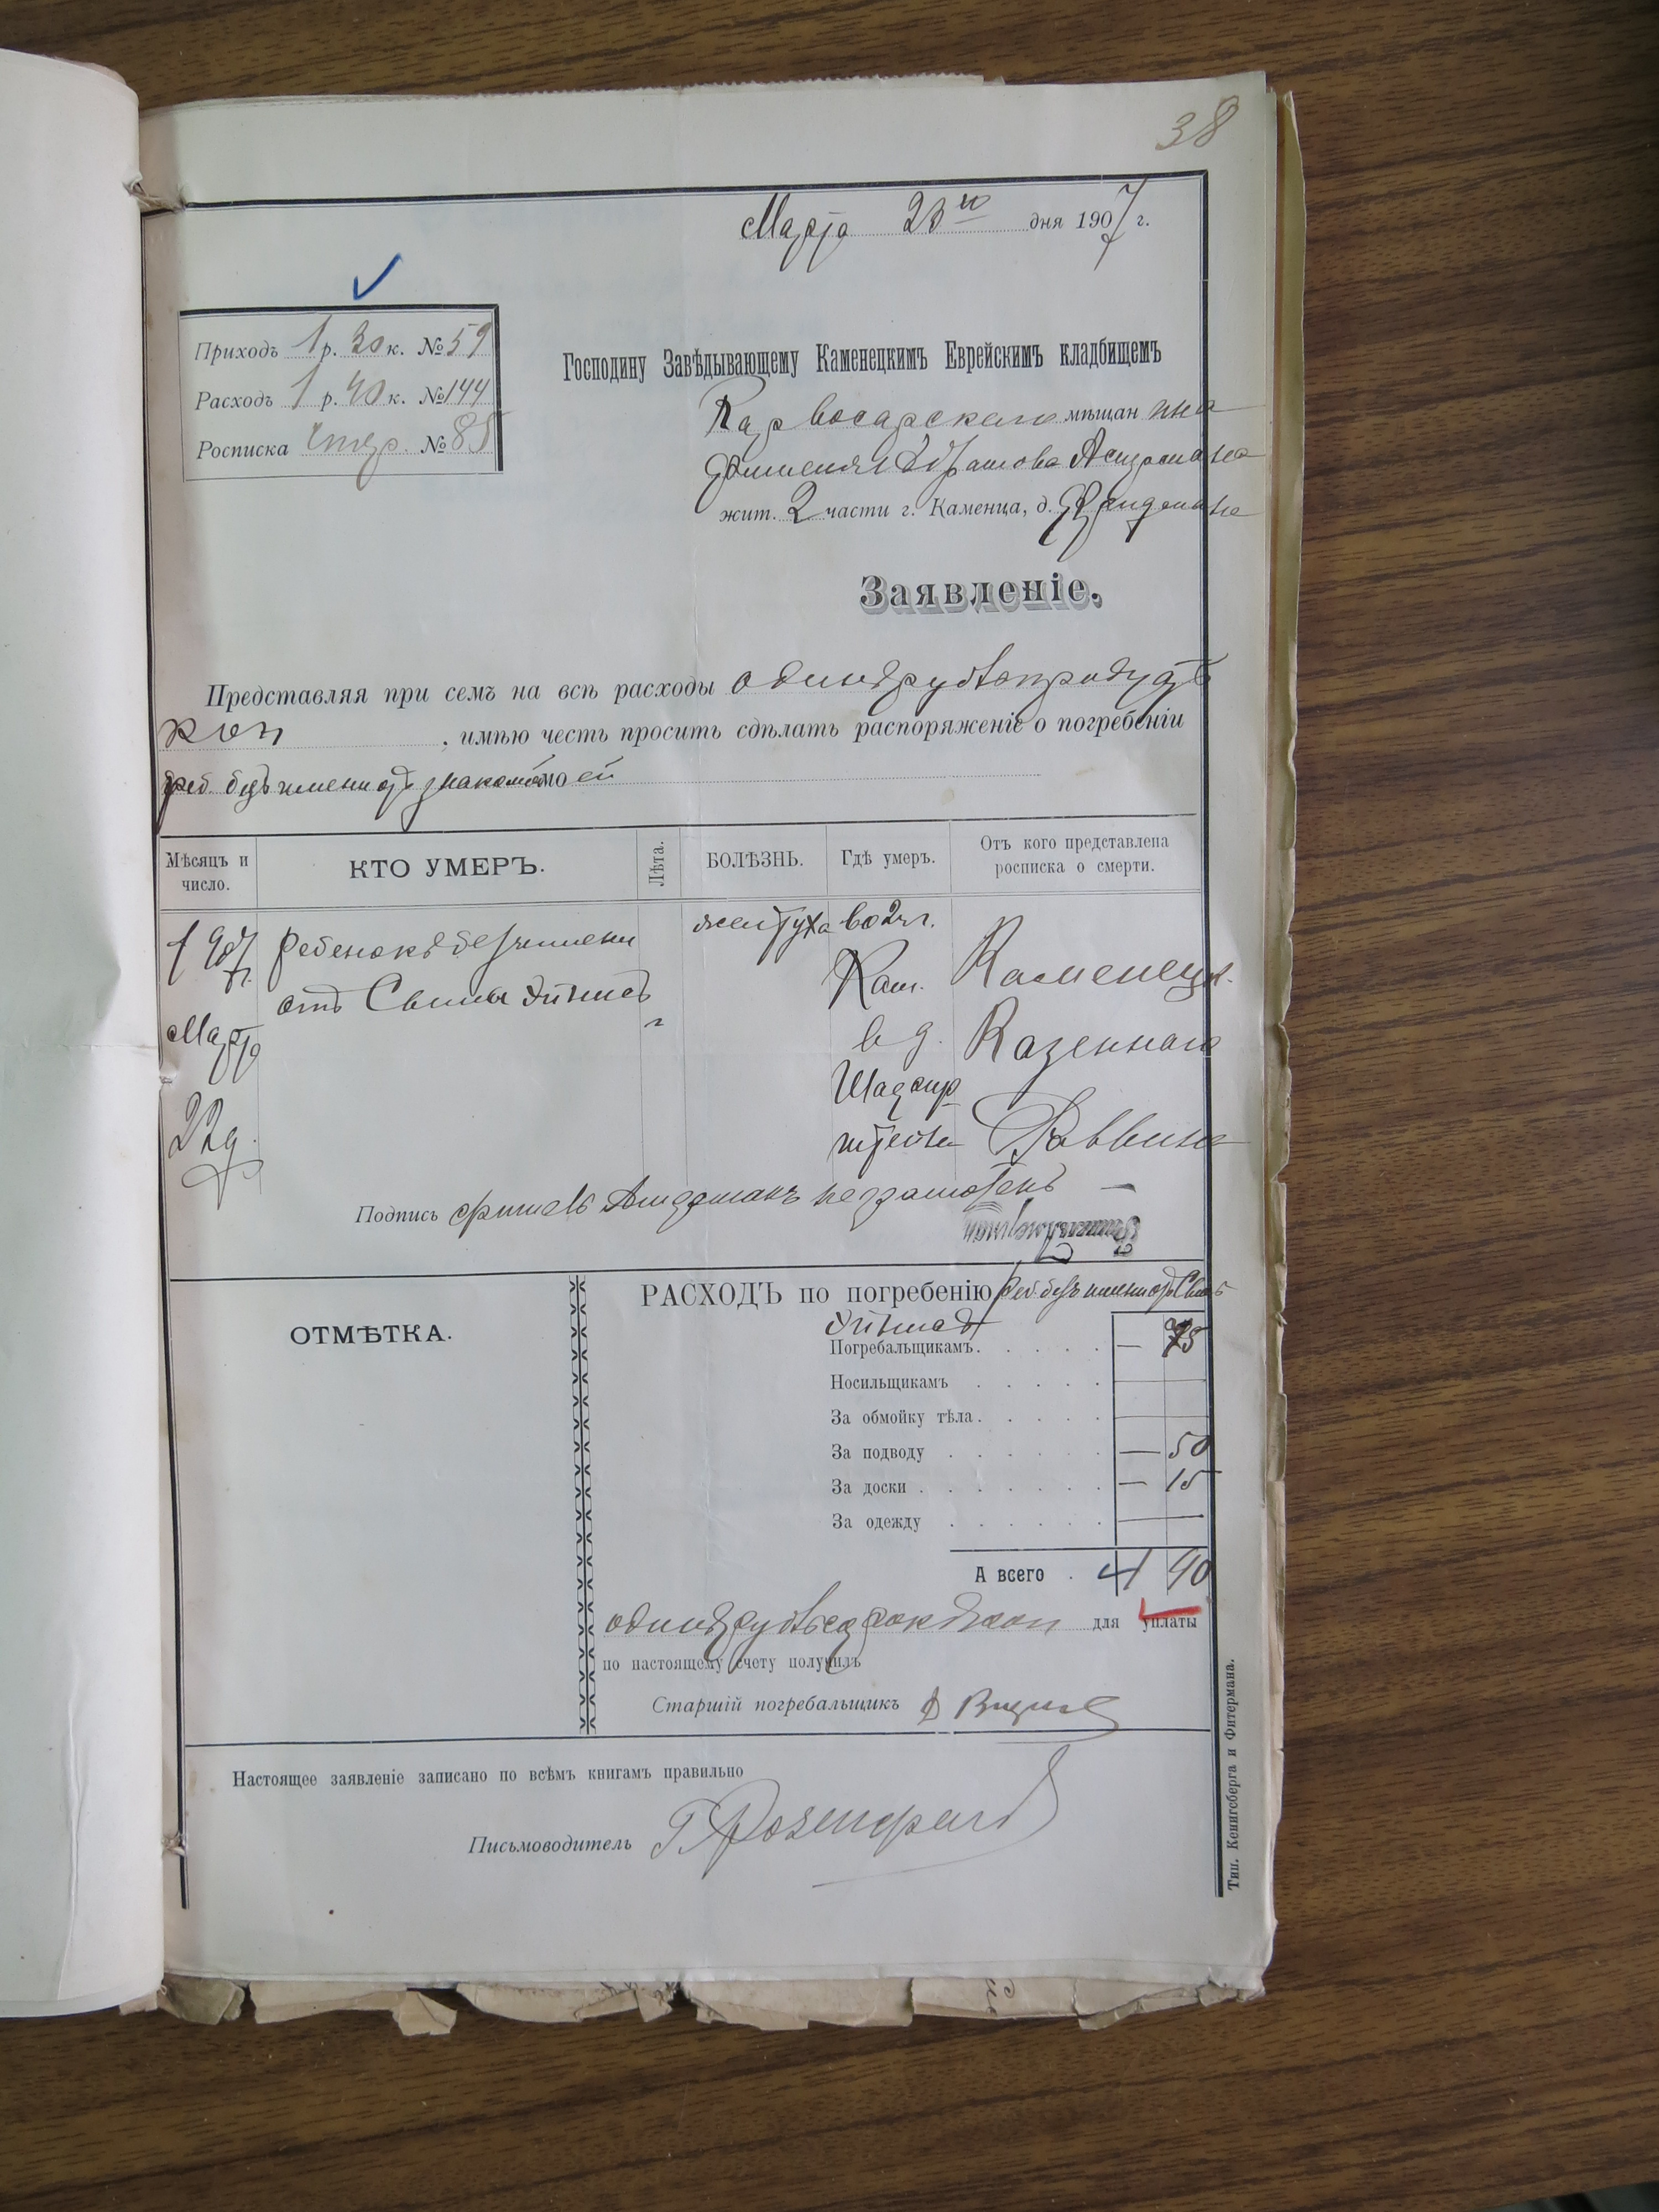 38
Марта 23го дня 1907 г.
Приходъ 1 р. 30 к. № 59
Расходъ 1 р. 40 к. № 144
Росписка № 85
Господину Завѣдывающему Каменецкимъ Еврейскимъ кладбищемъ
Карвосарскаго мѣщан ина
жит. 2 части г. Каменца, д.
Заявленіе.
Представляя при семъ на всѣ расходы одинъ рубль тридцать
коп , имѣю честь просить сдѣлать распоряженіе о погребеніи
реб. безъ имени отъ знакомой моей
Мѣсяцъ и число.
КТО УМЕРЪ.
Лѣта.
БОЛѢЗНЬ.
Гдѣ умеръ.
Отъ кого представлена росписка о смерти.
1907 г.
Марта
22 д.
Ребенокъ безъ имени
отъ Симы
желтуха
во 2 ч. г.
Кам.
в д.
Каменецк.
Казеннаго
Раввина
Подпись неграмотенъ
ОТМѢТКА.
РАСХОДЪ по погребенію реб. безъ имени отъ Симы
Погребальщикамъ — 75
Носильщикамъ
За обмойку тѣла
За подводу — 50
За доски — 15
За одежду
А всего 1 40
одинъ рубль сорокъ коп для уплаты
по настоящему счету получилъ
Старшій погребальщикъ
Настоящее заявленіе записано по всѣмъ книгамъ правильно
Письмоводитель
Тип. Кенигсберга и Фитермана.